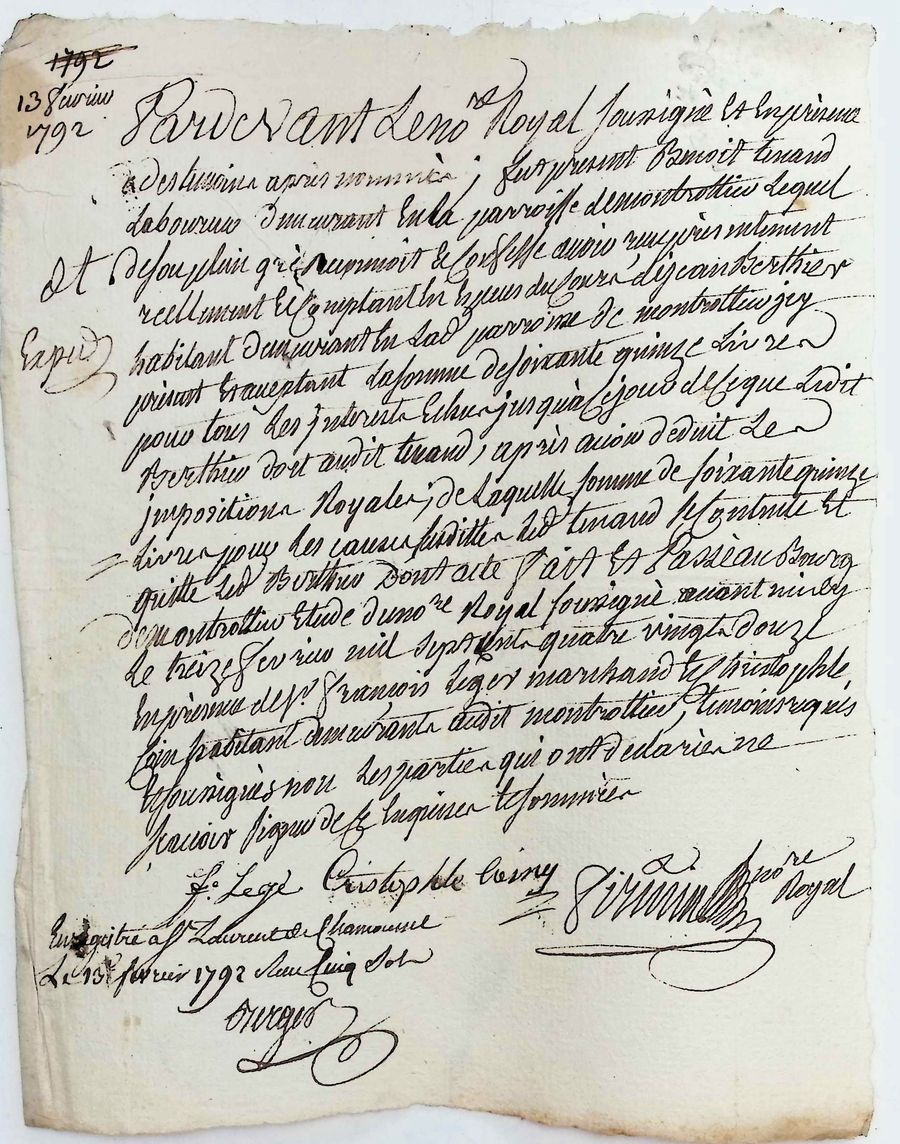 1792
13 fevrier
1792
Pardevant Le no.re Royal soussigné Et En présence
des temoins après nommés, fut present Benoit tenand
Laboureur demeurant En la parroisse de montrottier Lequel
De son plein gré reconnoit & Confesse avoir reçu présentement
Et
reellement & Comptant En Especes du Cours, de jean Berthier
habitant demeurant En Lad. parroisse de montrottier jcy
Exped
présent Et acceptant La somme de soixante quinze Livres
pour tous Les jnterests Echus jusqu'à Ce jour de Ce que Ledit
Berthier doit audit tenand, après avoir deduit Les
jmpositions Royales; de Laquelle somme de soixante quinze
Livres pour Les causes susdittes Led. tenand se Contente Et
quitte Led. Berthier Dont acte fait Et Passé au Bourg
de montrottier Etude du no.re Royal soussigné avant midy
Le treize fevrier mil sept cent quatre vingt douze
En présence de s.r françois Leger marchand & Christophle
Coin habitant demeurants audit montrottier, temoins requis
& soussignés non Les parties qui ont declaré ne
sçavoir signer de ce Enquises & sommées
f. Legé Cristophle Coing
no.re
Royal
Enregistré a St Laurent de Chamousset
Le 13 fevrier 1792 Reçu Cinq Sols